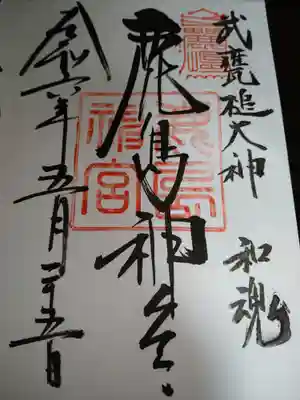 武甕槌大神 和魂
鹿島神宮
鹿島神宮
令和六年五月二十五日